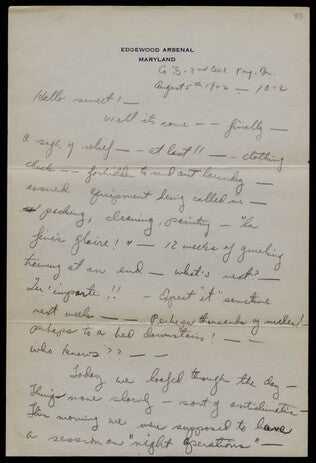 83
EDGEWOOD ARSENAL
MARYLAND
Co "B" - 2nd
August 5th 1942 — 10-2
Hello sweet! —
Well it's come — — finally —
a sigh of relief — — at last!! — — clothing
check — — forbidden to send out laundry —
issued equipment being called in —
packing, cleaning, painting — "la
finis gloire!" — 12 weeks of grueling
training at an end — what's next? —
N'importe!! — Expect "it" sometime
next week — — Perhaps thousands of miles! —
perhaps to a bed downstairs! — —
who knows?? — —
Today we loafed through the day —
Things move slowly — sort of anticlimatic —
This morning we were supposed to have
a session on "night operations" —